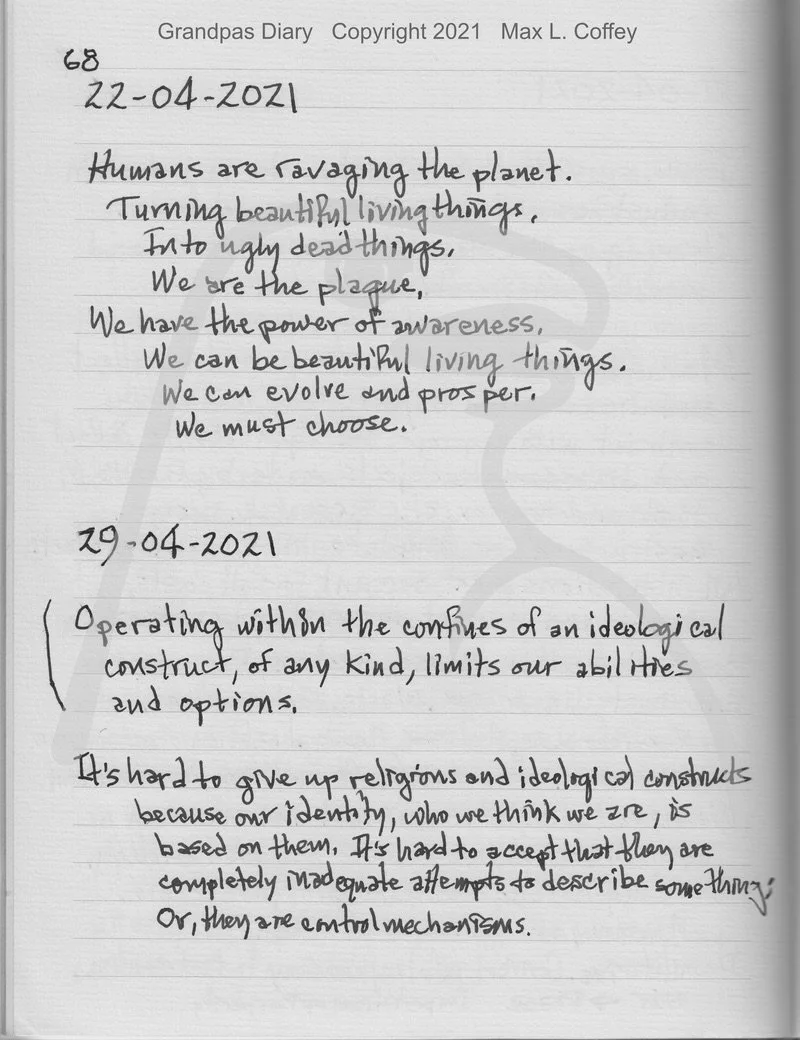 Grandpas Diary Copyright 2021 Max L. Coffey
68
22-04-2021
Humans are ravaging the planet.
Turning beautiful living things,
Into ugly dead things.
We are the plague.
We have the power of awareness.
We can be beautiful living things.
We can evolve and prosper.
We must choose.
29-04-2021
Operating within the confines of an ideological
construct, of any kind, limits our abilities
and options.
It's hard to give up religions and ideological constructs
because our identity, who we think we are, is
based on them. It's hard to accept that they are
completely inadequate attempts to describe something;
Or, they are control mechanisms.